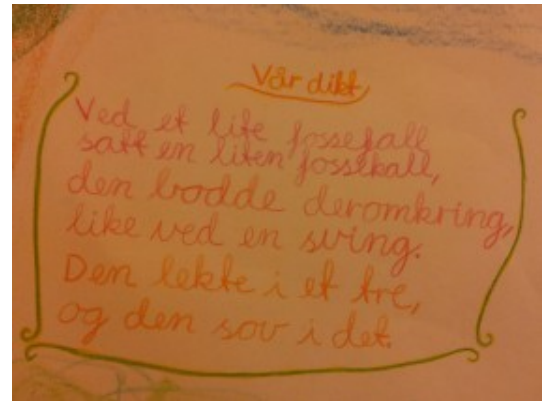 Vår dikt
Ved et lite fossefall
satt en liten fossekall,
den bodde deromkring,
like ved en sving.
Den lekte i et tre,
og den sov i det.